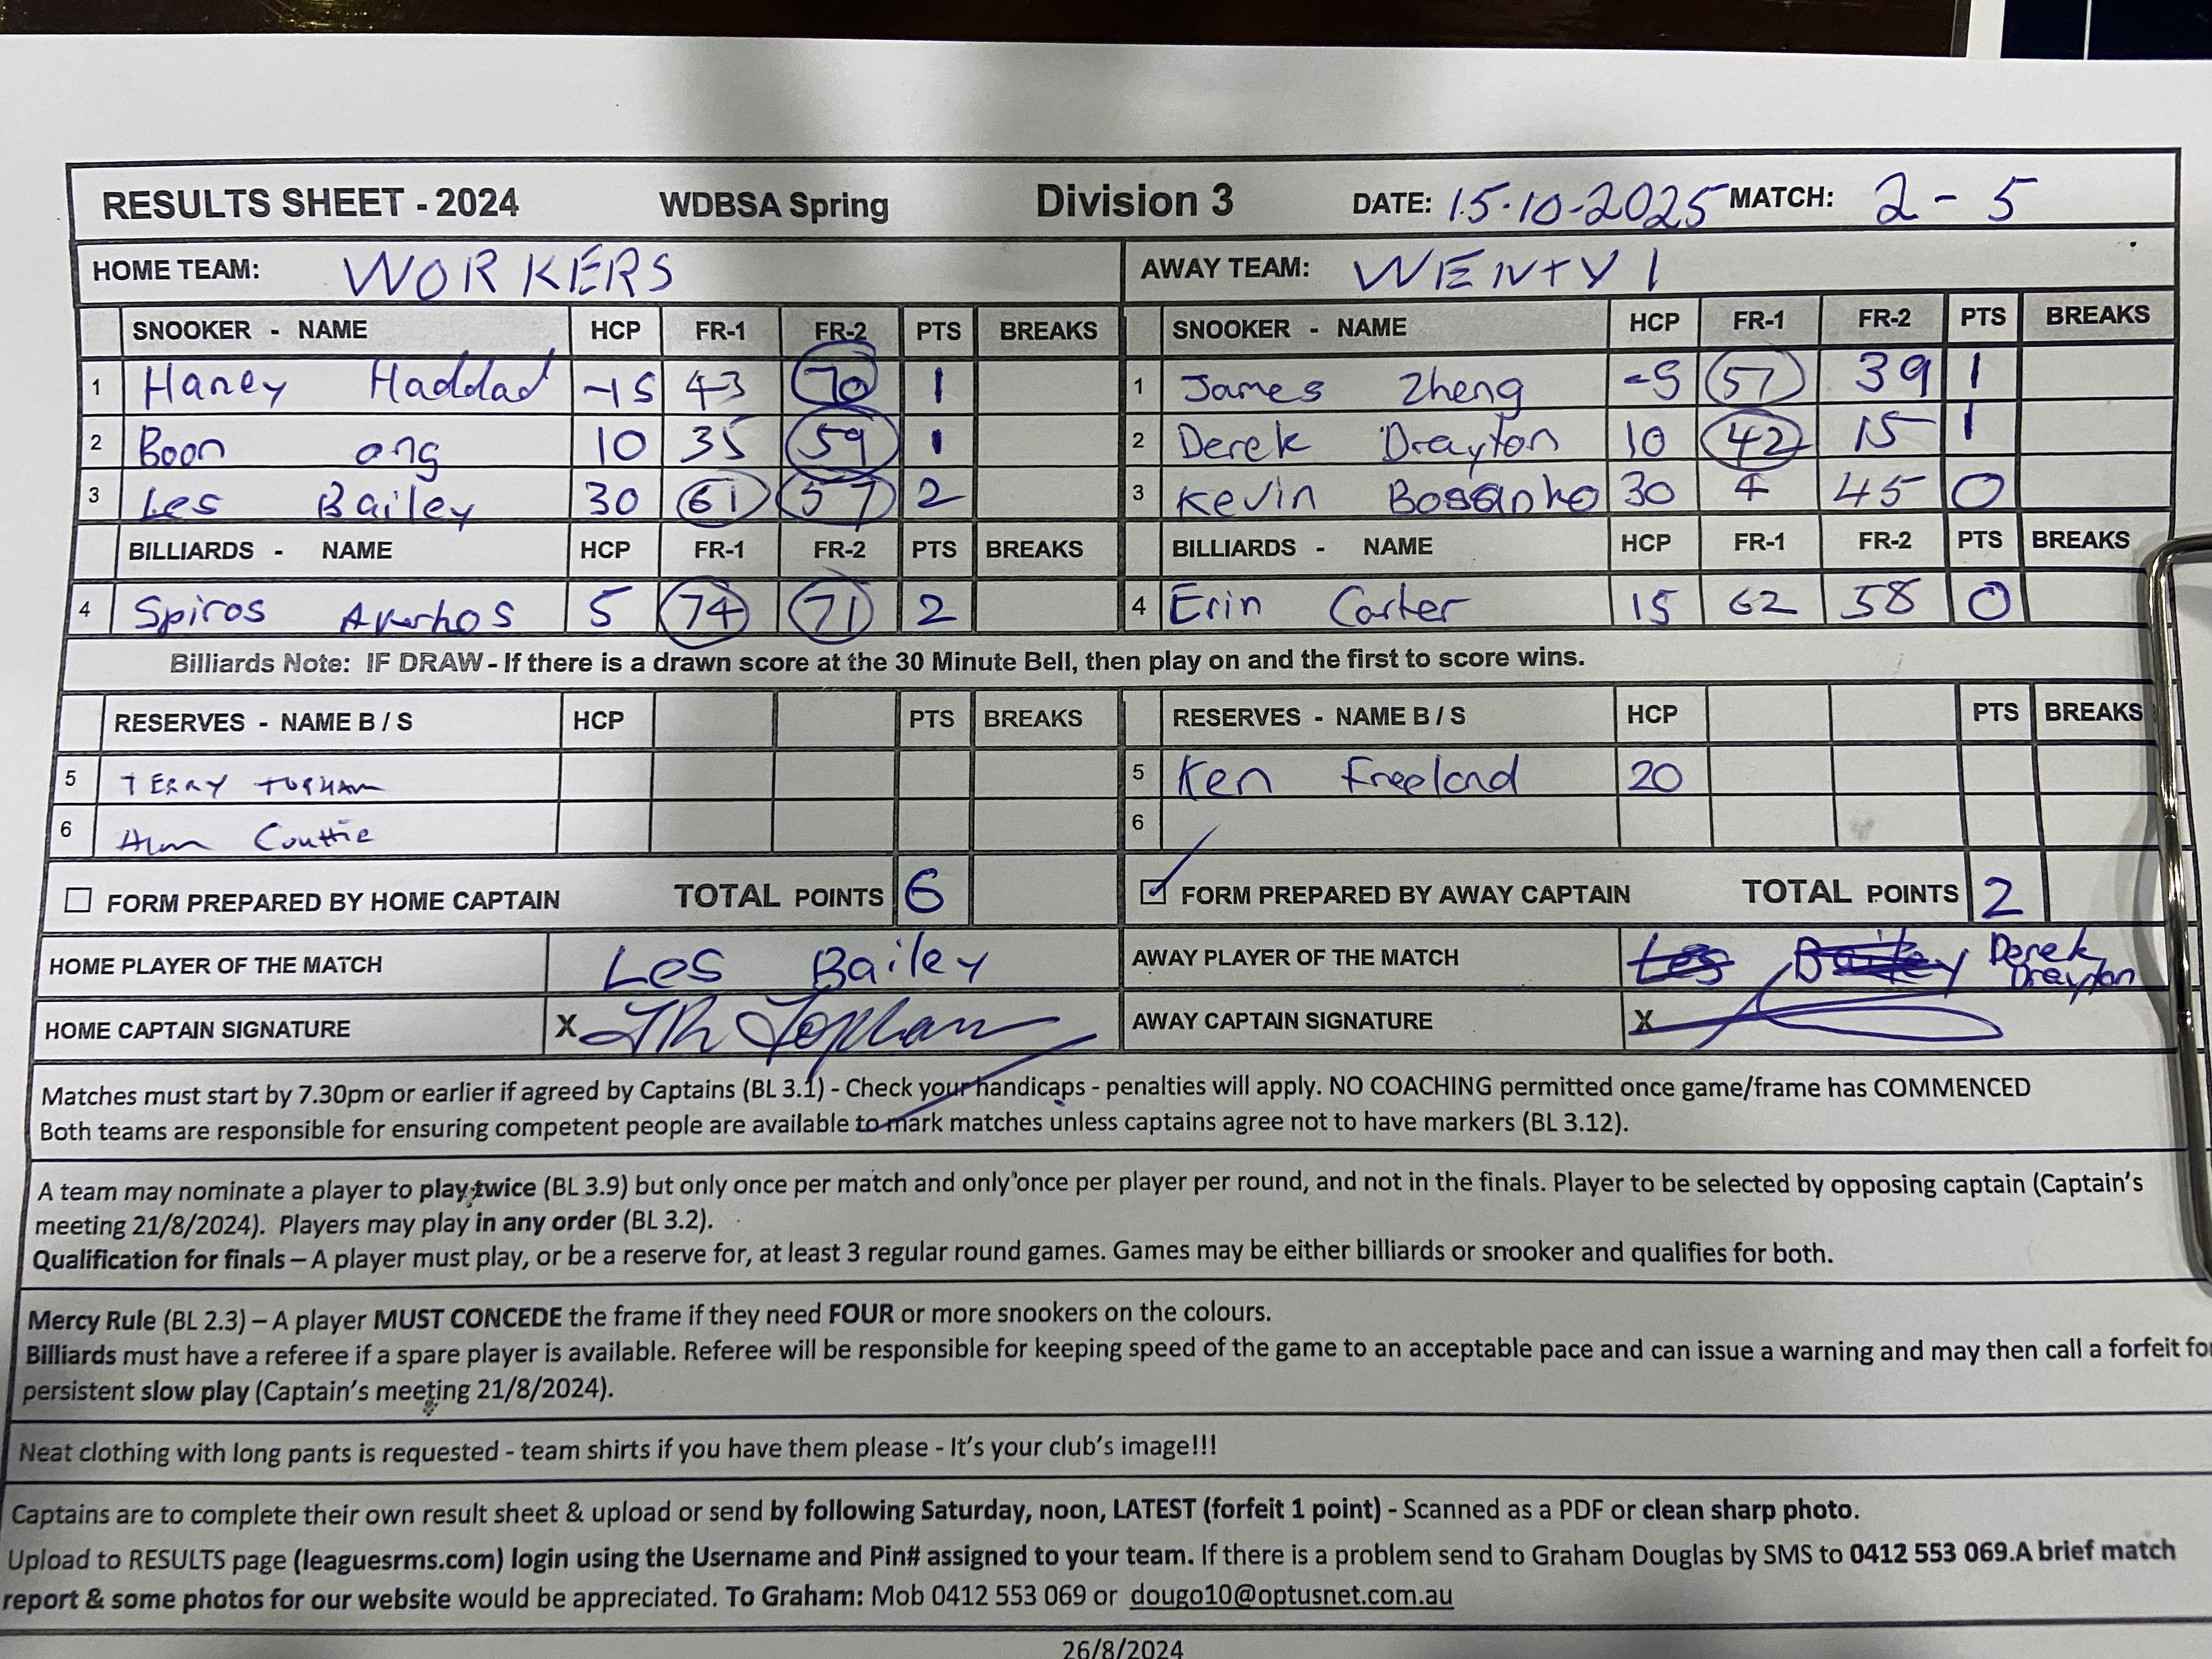 RESULTS SHEET - 2024 WDBSA Spring Division 3 DATE: 15-10-2025 MATCH: 2 - 5
HOME TEAM: WORKERS AWAY TEAM: WENTY 1
SNOOKER - NAME HCP FR-1 FR-2 PTS BREAKS SNOOKER - NAME HCP FR-1 FR-2 PTS BREAKS
1 Haney Haddad -15 43 70 1 1 James Zheng -5 57 39 1
2 Boon ong 10 35 59 1 2 Derek Drayton 10 42 15 1
3 Les Bailey 30 61 57 2 3 Kevin Bosanko 30 4 45 0
BILLIARDS - NAME HCP FR-1 FR-2 PTS BREAKS BILLIARDS - NAME HCP FR-1 FR-2 PTS BREAKS
4 Spiros 5 74 71 2 4 Erin Carter 15 62 58 0
Billiards Note: IF DRAW - If there is a drawn score at the 30 Minute Bell, then play on and the first to score wins.
RESERVES - NAME B / S HCP PTS BREAKS RESERVES - NAME B / S HCP PTS BREAKS
5 TERRY TOPHAM 5 Ken Freelond 20
6 Couttie 6
FORM PREPARED BY HOME CAPTAIN TOTAL POINTS 6 FORM PREPARED BY AWAY CAPTAIN TOTAL POINTS 2
HOME PLAYER OF THE MATCH Les Bailey AWAY PLAYER OF THE MATCH Les Bailey Derek Drayton
HOME CAPTAIN SIGNATURE X Topham AWAY CAPTAIN SIGNATURE X
Matches must start by 7.30pm or earlier if agreed by Captains (BL 3.1) - Check your handicaps - penalties will apply. NO COACHING permitted once game/frame has COMMENCED
Both teams are responsible for ensuring competent people are available to mark matches unless captains agree not to have markers (BL 3.12).
A team may nominate a player to play twice (BL 3.9) but only once per match and only once per player per round, and not in the finals. Player to be selected by opposing captain (Captain's
meeting 21/8/2024). Players may play in any order (BL 3.2).
Qualification for finals – A player must play, or be a reserve for, at least 3 regular round games. Games may be either billiards or snooker and qualifies for both.
Mercy Rule (BL 2.3) – A player MUST CONCEDE the frame if they need FOUR or more snookers on the colours.
Billiards must have a referee if a spare player is available. Referee will be responsible for keeping speed of the game to an acceptable pace and can issue a warning and may then call a forfeit for
persistent slow play (Captain's meeting 21/8/2024).
Neat clothing with long pants is requested - team shirts if you have them please - It's your club's image!!!
Captains are to complete their own result sheet & upload or send by following Saturday, noon, LATEST (forfeit 1 point) - Scanned as a PDF or clean sharp photo.
Upload to RESULTS page (leaguesrms.com) login using the Username and Pin# assigned to your team. If there is a problem send to Graham Douglas by SMS to 0412 553 069.A brief match
report & some photos for our website would be appreciated. To Graham: Mob 0412 553 069 or dougo10@optusnet.com.au
26/8/2024